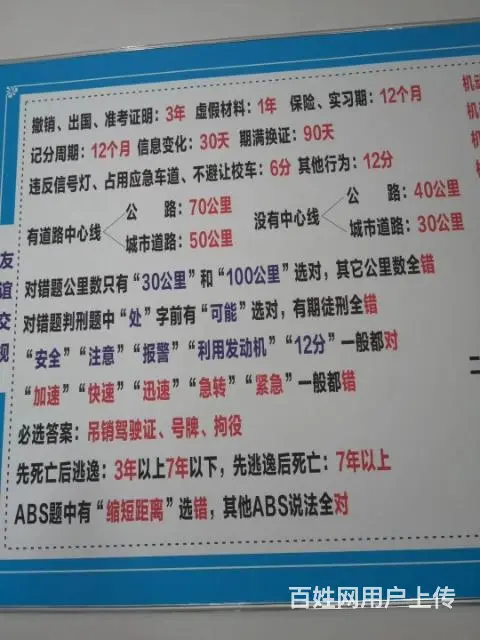 撤销、出国、准考证明：3年 虚假材料：1年 保险、实习期：12个月
记分周期：12个月 信息变化：30天 期满换证：90天
违反信号灯、占用应急车道、不避让校车：6分 其他行为：12分
有道路中心线
公 路：70公里
城市道路：50公里
没有中心线
公 路：40公里
城市道路：30公里
对错题公里数只有“30公里”和“100公里”选对，其它公里数全错
对错题判刑题中“处”字前有“可能”选对，有期徒刑全错
“安全”“注意”“报警”“利用发动机”“12分”一般都对
“加速”“快速”“迅速”“急转”“紧急”一般都错
必选答案：吊销驾驶证、号牌、拘役
先死亡后逃逸：3年以上7年以下，先逃逸后死亡：7年以上
ABS题中有“缩短距离”选错，其他ABS说法全对
友谊交规
机动
机
机
百姓网用户上传